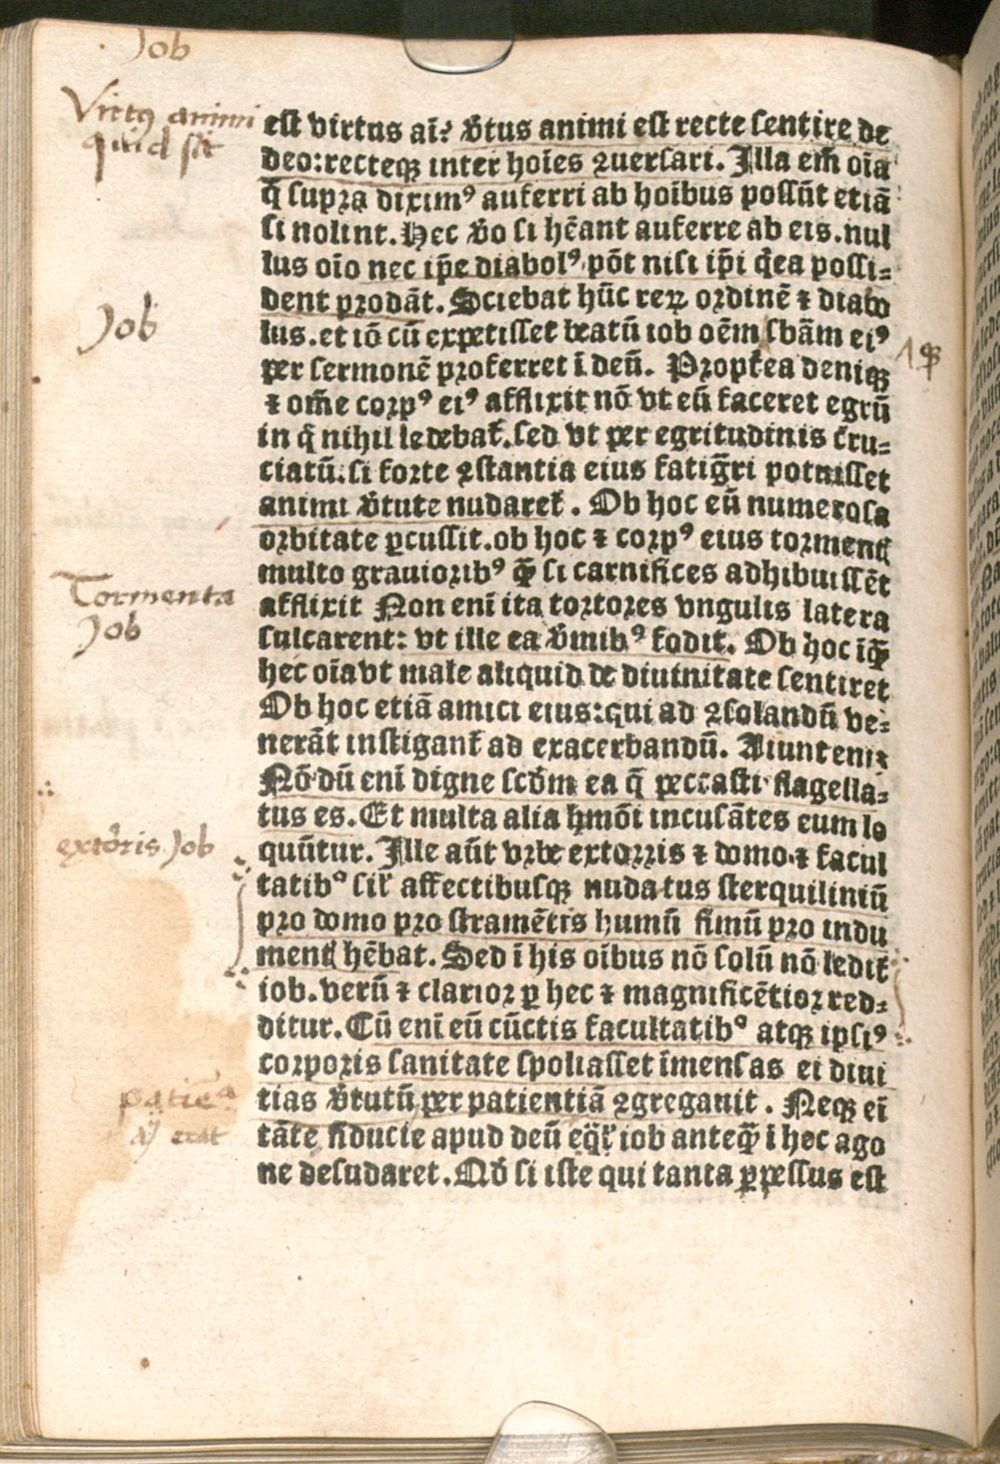 Job
Virtus animi
quid sit
est virtus ai? v̓tus animi est recte sentire de
deo:recteqꝫ inter hoīes ꝯuersari. Illa em̄ oīa
q̄ supꝛa dixim⁹ auferri ab hoībus possūt etiā
si nolint. Hec v̓o si hēant auferre ab eis.nul
lus oīo nec ip̄e diabol⁹ pōt nisi ip̄i q̓ ea possi⸗
dent pꝛodāt. Sciebat hūc reꝝ oꝛdinē ⁊ diabo
Job
lus.et iō cū expetisset beatū iob oēm sbām ei⁹
per sermonē pꝛoferret ī deū. Pꝛopt̓ea deniqꝫ
⁊ om̄e coꝛp⁹ ei⁹ afflixit nō vt eū faceret egrū
in q̓ nihil ledebat̓.sed vt per egritudinis cru⸗
ciatū.si foꝛte ꝯstantia eius fatiḡri potuisset
animi v̓tute nudaret̓. Ob hoc eū numerosa
oꝛbitate ꝑcussit.ob hoc ⁊ coꝛp⁹ eius toꝛmentꝭ
multo grauioꝛib⁹ q̄ꝫ si carnifices adhibuissēt
Tormenta
Job
afflixit Non enī ita toꝛtoꝛes vngulis latera
sulcarent: vt ille ea v̓mib⁹ fodit. Ob hoc īqͣꝫ
hec oīa vt male aliquid de diuinitate sentiret
Ob hoc etiā amici eius:qui ad ꝯsolandū ve⸗
nerāt instigant̓ ad exacerbandū. Aiunt eniꝫ
Nō dū enī digne scd̓m ea q̄ peccasti flagella⸗
tus es. Et multa alia hmōi incusātes eum lo
extorris Job
quūtur. Ille aūt vrbe extoꝛris ⁊ domo ⁊ facul
tatib⁹ sil̓ affectibusqꝫ nudatus sterquiliniū
pꝛo domo pꝛo stramētis humū fimū pꝛo indu
mentꝭ hēbat. Sed ī his oībus nō solū nō ledit̓
iob. verū ⁊ clarioꝛ ꝑ hec ⁊ magnificētioꝛ red⸗
ditur. Cū enī eū cūctis facultatib⁹ atqꝫ ipsi⁹
coꝛpoꝛis sanitate spoliasset īmensas ei diui
patie
erat
tias v̓tutū per patientiā ꝯgregauit. Neqꝫ eī
tāte fiducie apud deū eq̓r̓ iob anteq̄ꝫ ī hoc ago
ne desudaret. Nō si iste qui tanta ꝑpessus est